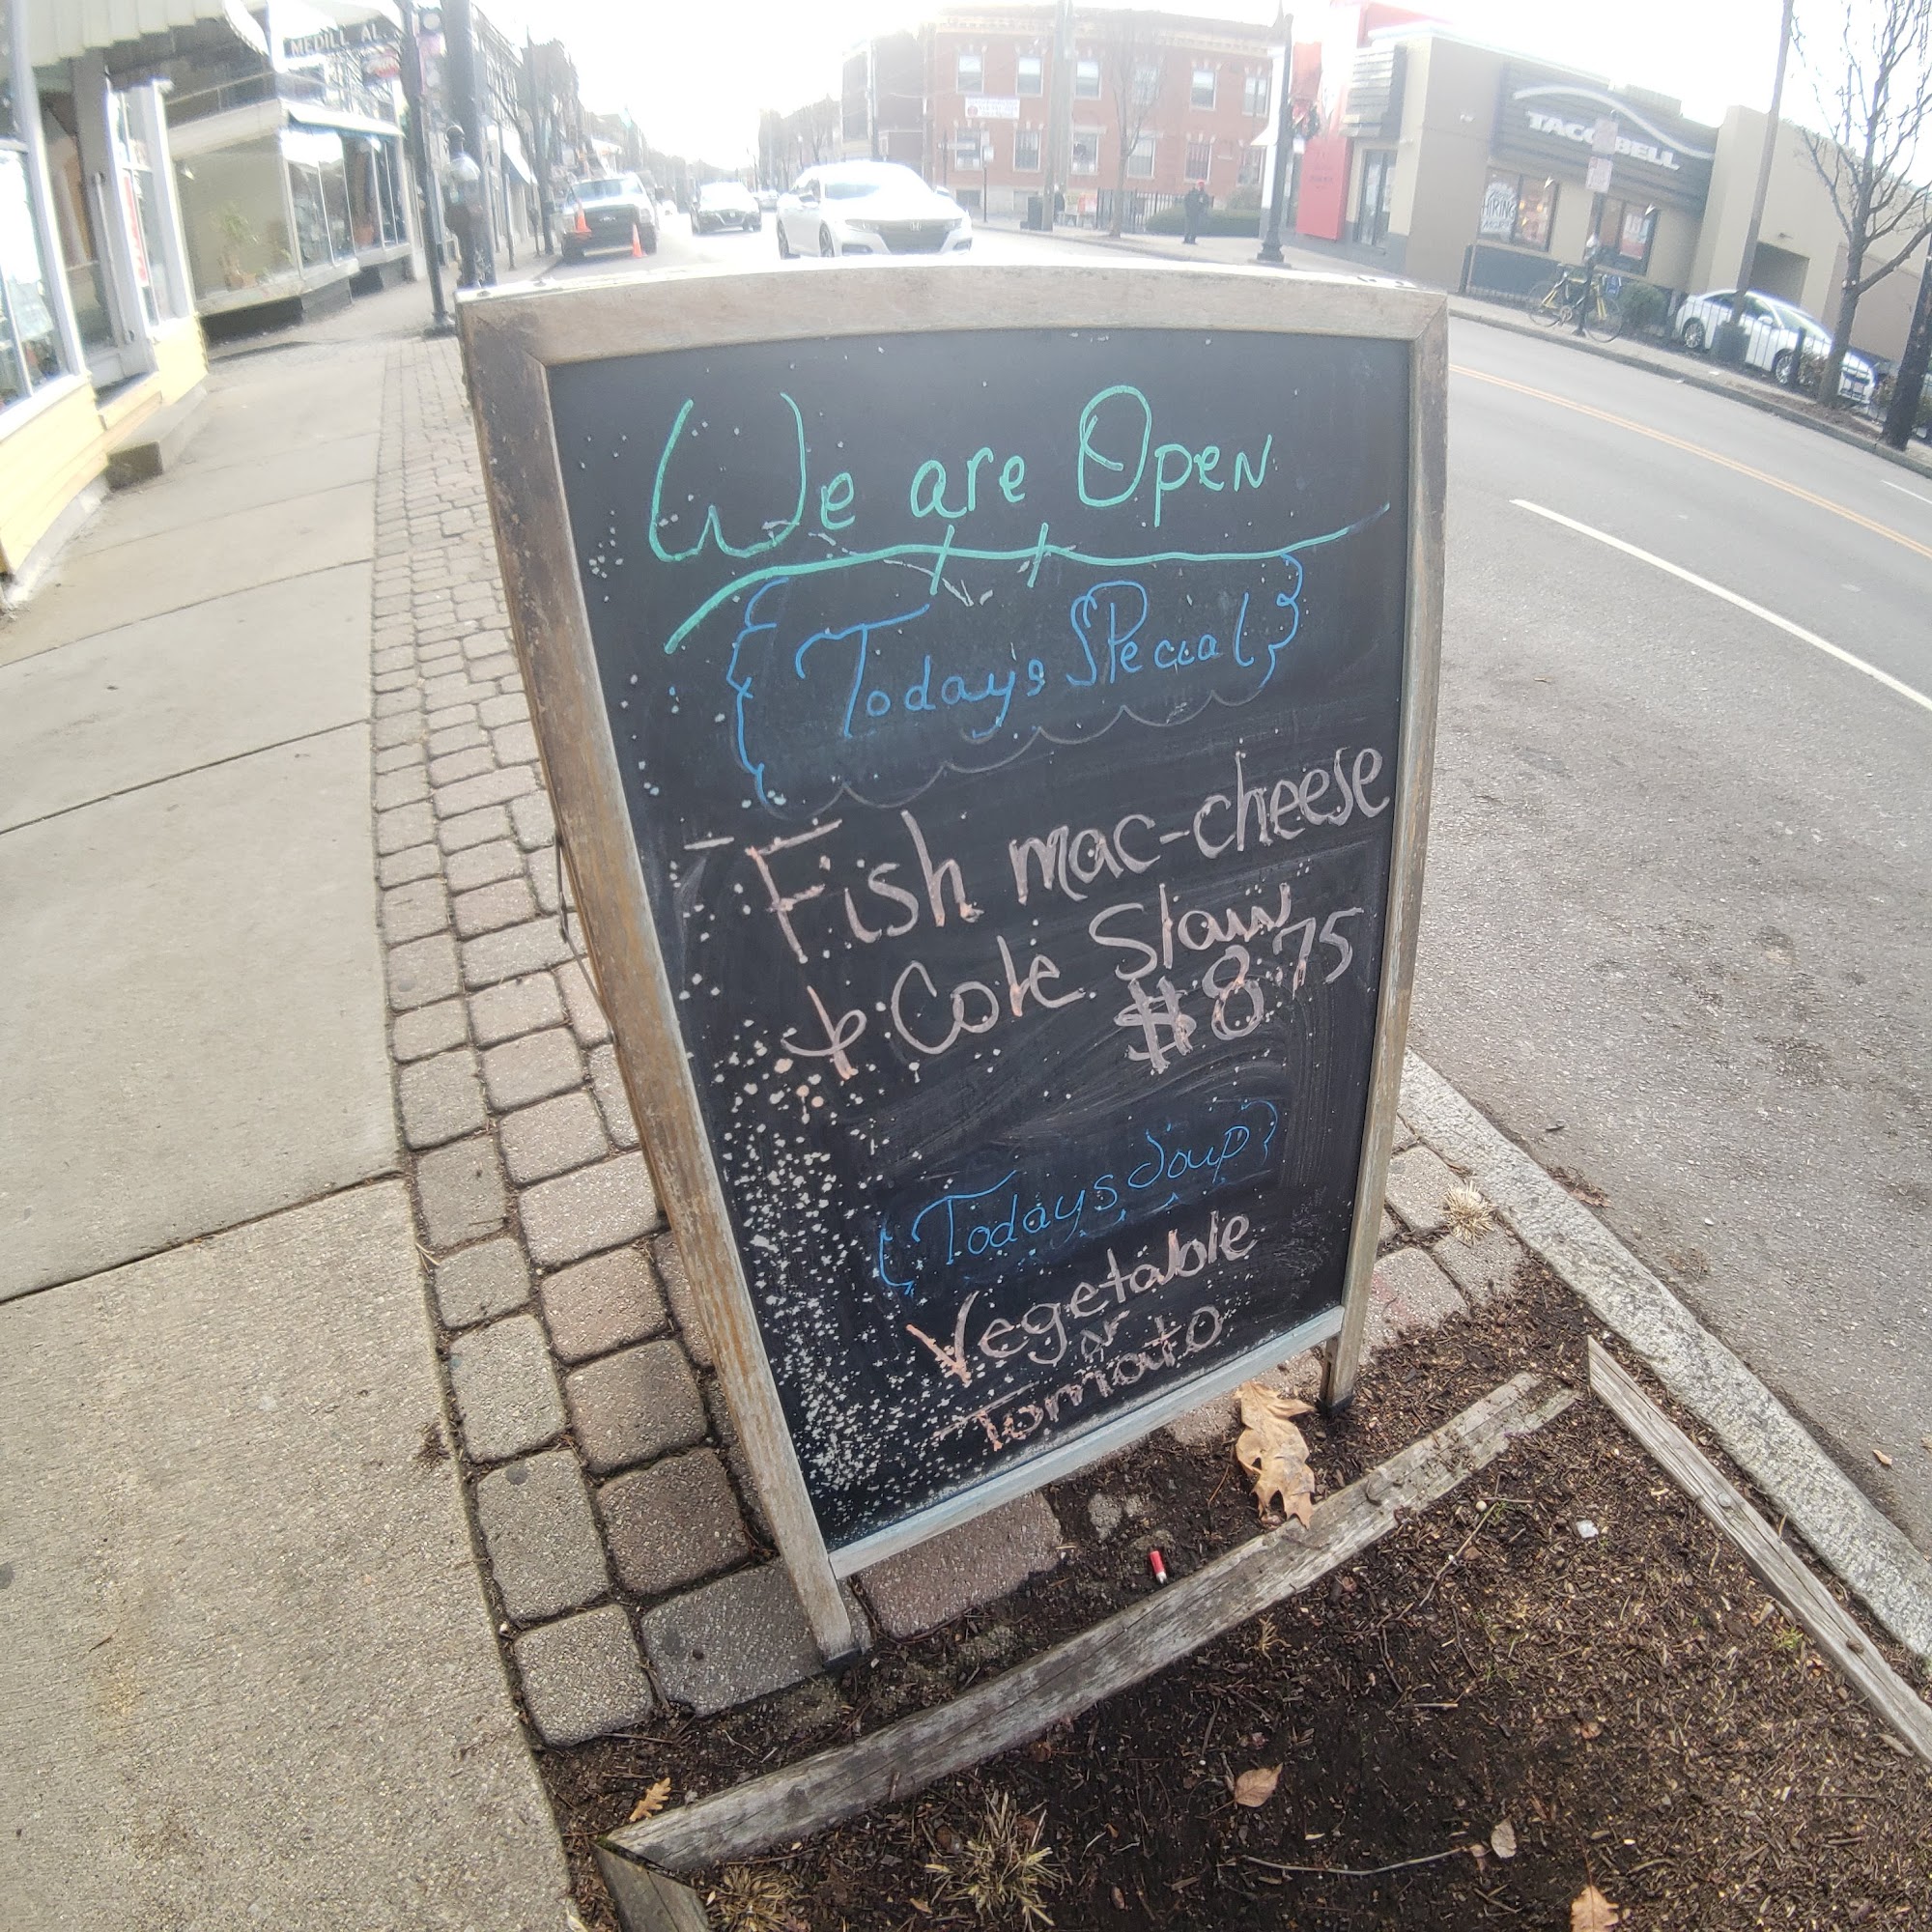 MEDILL AL
TACO BELL
HIRING
We are Open
{Todays Special}
- Fish mac-cheese
& Cole Slaw
$8.75
{Todays Soup}
Vegetable
or
Tomato